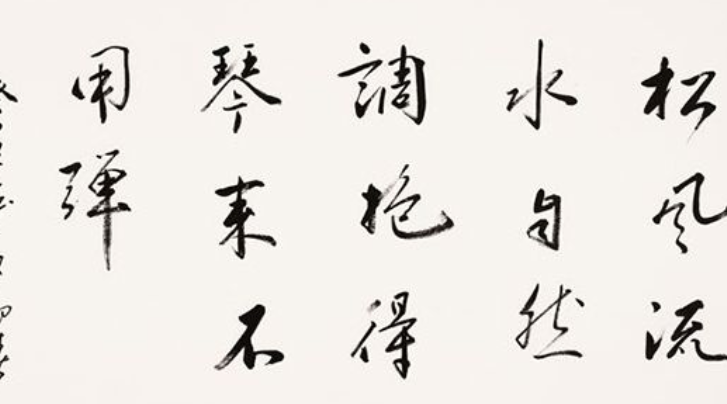 松风流
水自然
調抱得
琴来不
用弹